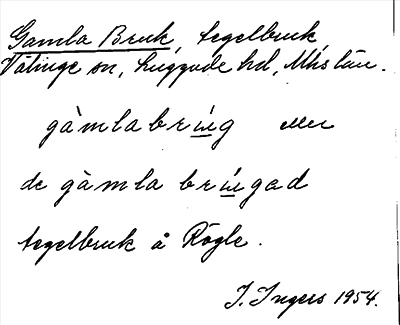 Gamla Bruk, tegelbruk,
Välinge sn, Luggude hd, Mhs län.
gàmlabrúg eller
de gàmla brúgad
tegelbruk å Rögle.
I. Ingers 1954.